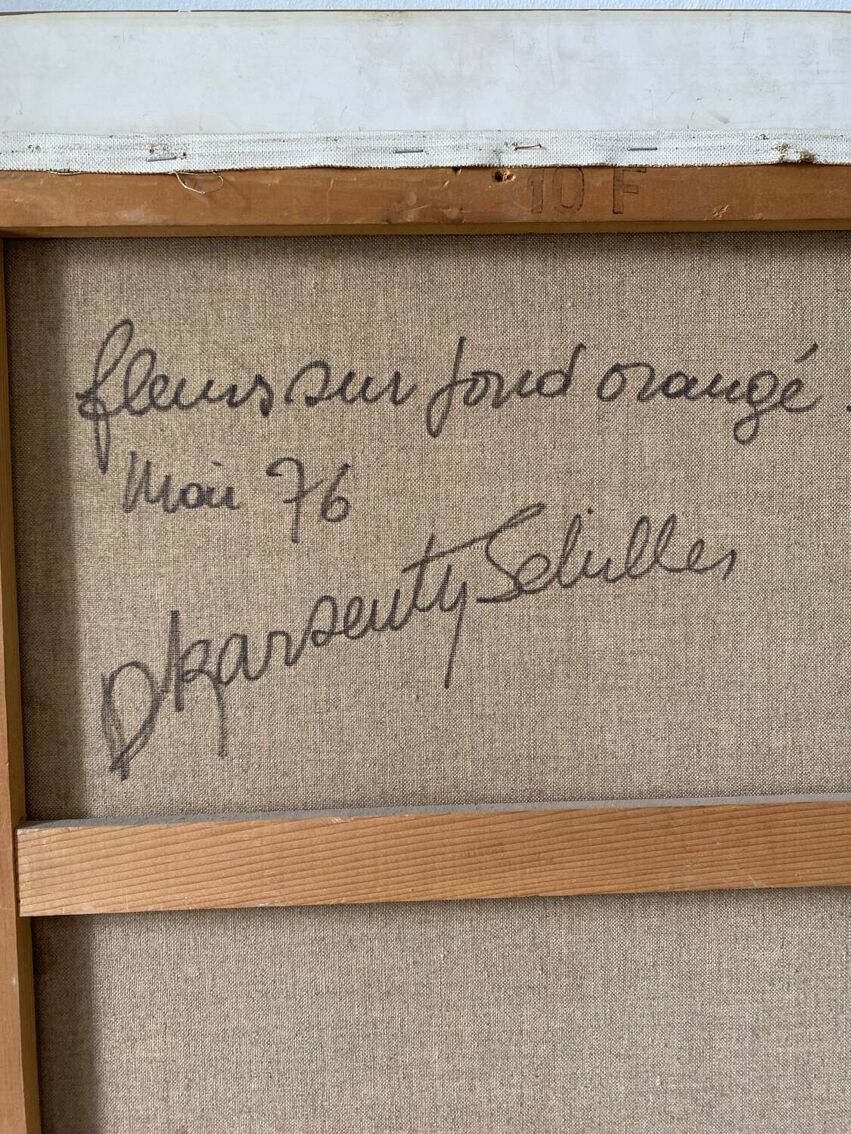 10 F
fleurs sur fond orangé.
Mai 76
D Karsenty Schiller